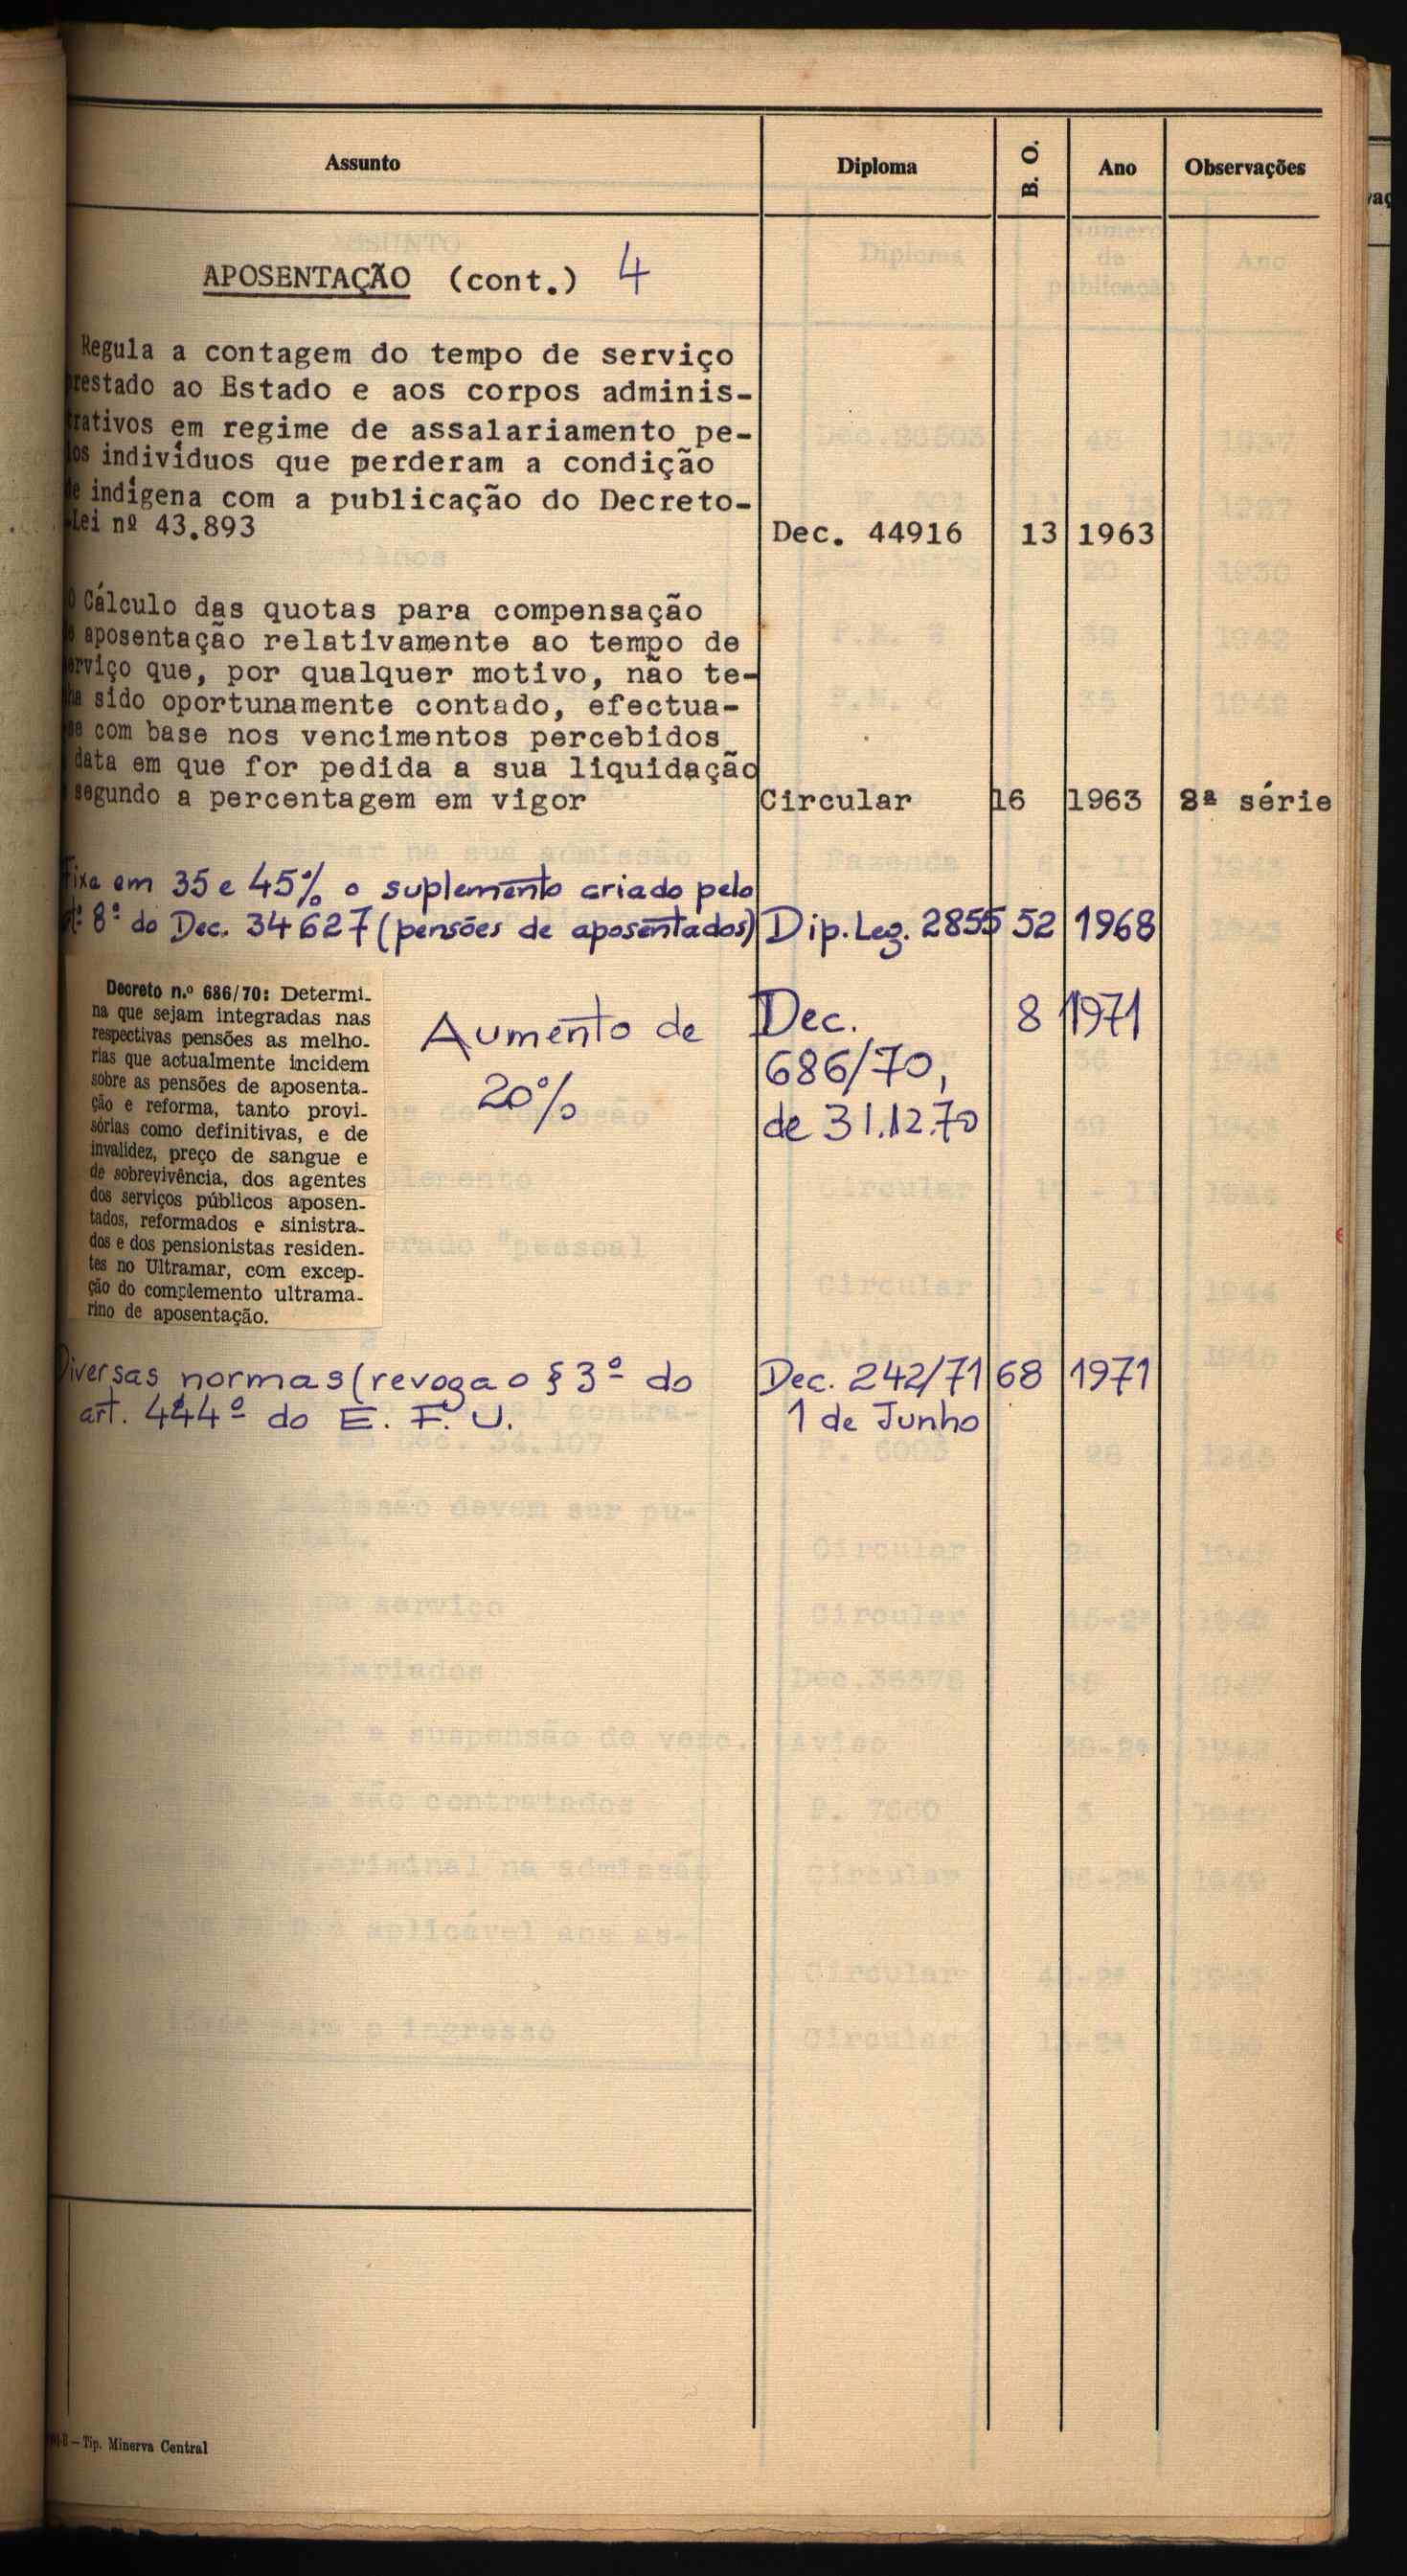 Assunto Diploma B. O. Ano Observações
APOSENTAÇÃO (cont.) 4
Regula a contagem do tempo de serviço
restado ao Estado e aos corpos adminis-
rativos em regime de assalariamento pe-
os indivíduos que perderam a condição
e indígena com a publicação do Decreto-
Lei nº 43.893 Dec. 44916 13 1963
O Cálculo das quotas para compensação
aposentação relativamente ao tempo de
erviço que, por qualquer motivo, não te-
ha sido oportunamente contado, efectua-
se com base nos vencimentos percebidos
data em que for pedida a sua liquidação
segundo a percentagem em vigor Circular 16 1963 2ª série
Fixa em 35 e 45% o suplemento criado pelo
8º do Dec. 34627 (pensões de aposentados) Dip. Leg. 2855 52 1968
Decreto n.º 686/70: Determi-
na que sejam integradas nas
respectivas pensões as melho-
rias que actualmente incidem
sobre as pensões de aposenta-
ção e reforma, tanto provi-
sórias como definitivas, e de
invalidez, preço de sangue e
de sobrevivência, dos agentes
dos serviços públicos aposen-
tados, reformados e sinistra-
dos e dos pensionistas residen-
tes no Ultramar, com excep-
ção do complemento ultrama-
rino de aposentação.
Aumento de
20%
Dec. 8 1971
686/70,
de 31.12.70
Diversas normas (revoga o § 3º do Dec. 242/71 68 1971
art. 444º do E. F. U. 1 de Junho
– Tip. Minerva Central